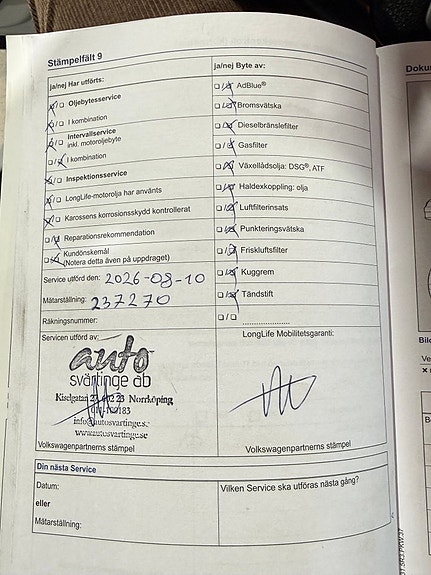 Stämpelfält 9
ja/nej Har utförts:
Oljebytesservice
I kombination
Intervallservice
inkl. motoroljebyte
I kombination
Inspektionsservice
LongLife-motorolja har använts
Karossens korrosionsskydd kontrollerat
Reparationsrekommendation
Kundönskemål
(Notera detta även på uppdraget)
Service utförd den: 2026-08-10
Mätarställning: 237270
Räkningsnummer:
Servicen utförd av:
auto
svärtinge ab
Kiselgatan 23 602 23 Norrköping
info@autosvartinge.se
www.autosvartinge.se
Volkswagenpartnerns stämpel
ja/nej Byte av:
AdBlue®
Bromsvätska
Dieselbränslefilter
Gasfilter
Växellådsolja: DSG®, ATF
Haldexkoppling: olja
Luftfilterinsats
Punkteringsvätska
Friskluftsfilter
Kuggrem
Tändstift
LongLife Mobilitetsgaranti:
Volkswagenpartnerns stämpel
Din nästa Service
Datum:
eller
Mätarställning:
Vilken Service ska utföras nästa gång?
Dokur